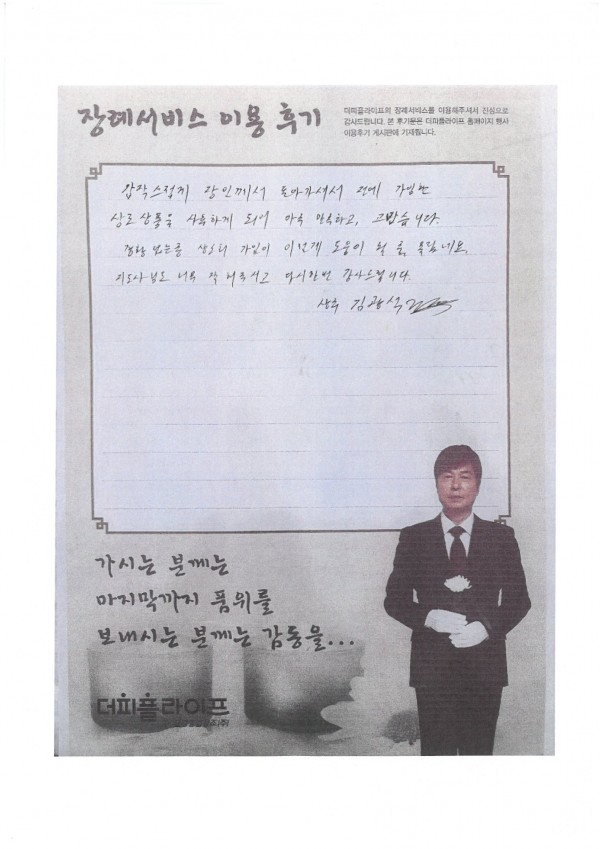 장례서비스 이용 후기
더피플라이프의 장례서비스를 이용해주셔서 진심으로
감사드립니다. 본 후기문은 더피플라이프 홈페이지 행사
이용후기 게시판에 기재됩니다.
갑작스럽게 장인께서 돌아가셔서 전에 가입한
상조상품을 사용하게 되어 아주 만족하고, 고맙습니다.
보는중 상조의 가입이 이런게 도움이 될 줄 몰랐네요.
지도사님도 너무 잘 해주시고 다시한번 감사드립니다.
상주 김광석
가시는 분께는
마지막까지 품위를
보내시는 분께는 감동을...
더피플라이프